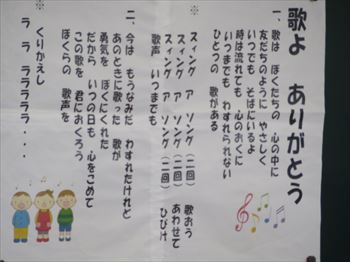 歌よ ありがとう
一、歌は ぼくたちの 心の中に
友だちのように やさしく
いつでも そばにいるよ
時は流れても 心のおくに
いつまでも わすれられない
ひとつの 歌がある
※
スィング ア ソング（二回） 歌おう
スィング ア ソング（二回） あわせて
スィング ア ソング（二回） ひびけ
歌声 いつまでも
二、今は もうなみだ わすれたけれど
あのときに歌った 歌が
勇気を ぼくにくれた
だから いつの日も 心をこめて
この歌を 君におくろう
ぼくらの 歌声を
※
くりかえし
ラ ラ ララララ・・・